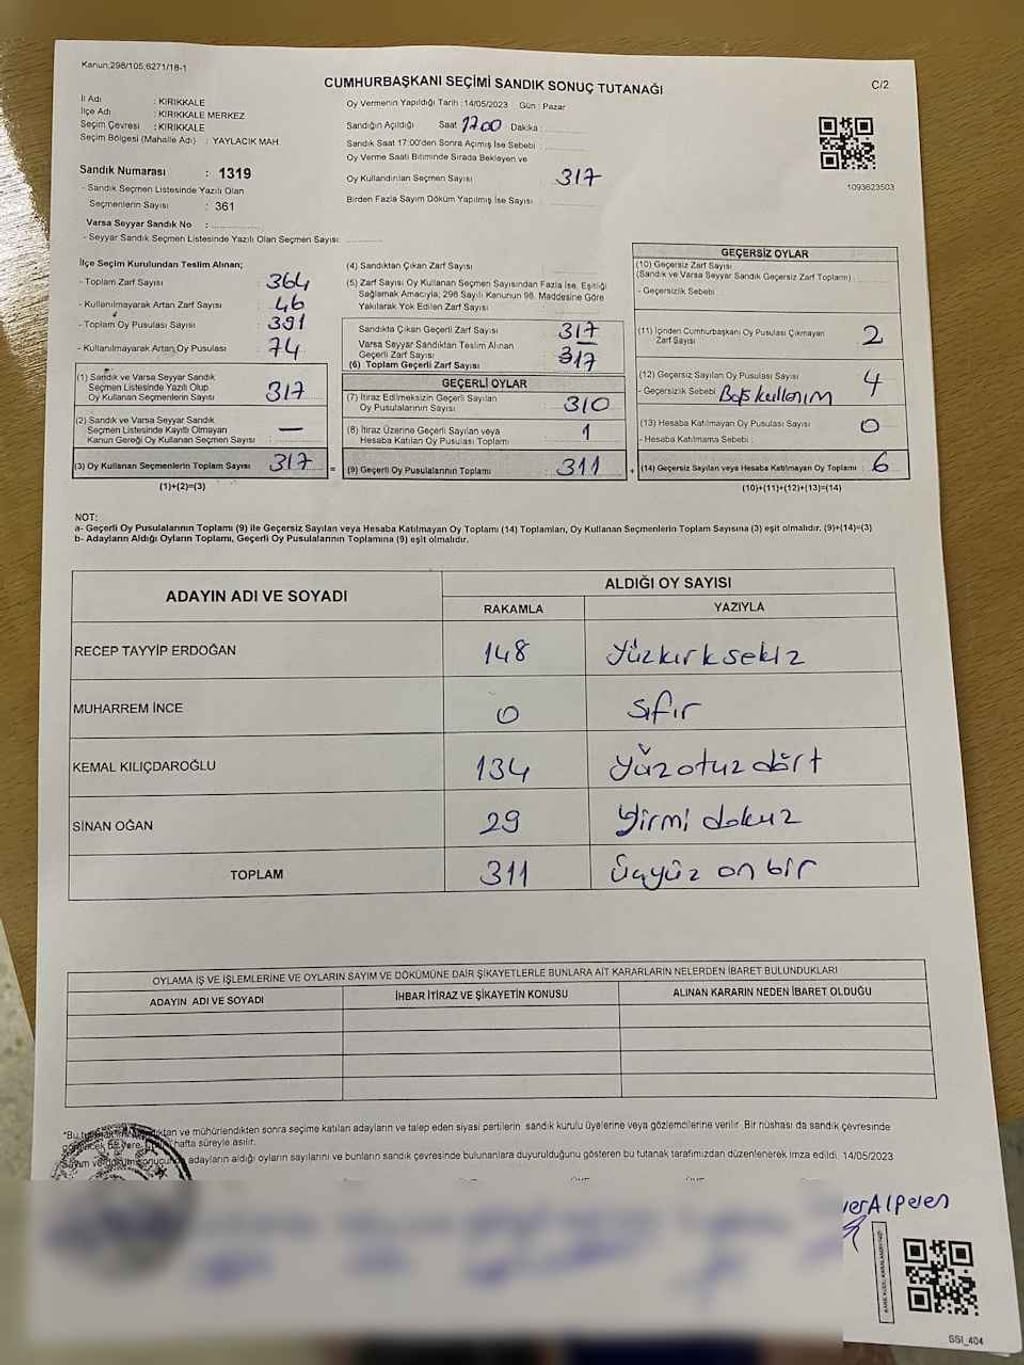 Kanun:298/105,6271/18-1
CUMHURBAŞKANI SEÇİMİ SANDIK SONUÇ TUTANAĞI
C/2
İl Adı : KIRIKKALE
İlçe Adı : KIRIKKALE MERKEZ
Seçim Çevresi : KIRIKKALE
Seçim Bölgesi (Mahalle Adı) : YAYLACIK MAH.
Sandık Numarası : 1319
- Sandık Seçmen Listesinde Yazılı Olan
Seçmenlerin Sayısı : 361
Varsa Seyyar Sandık No :
- Seyyar Sandık Seçmen Listesinde Yazılı Olan Seçmen Sayısı:
Oy Vermenin Yapıldığı Tarih :14/05/2023 Gün : Pazar
Sandığın Açıldığı Saat 1700 Dakika :
Sandık Saat 17:00'den Sonra Açılmış İse Sebebi :
Oy Verme Saati Bitiminde Sırada Bekleyen ve
Oy Kullandırılan Seçmen Sayısı : 317
Birden Fazla Sayım Döküm Yapılmış İse Sayısı :
1093623503
İlçe Seçim Kurulundan Teslim Alınan;
- Toplam Zarf Sayısı : 364
- Kullanılmayarak Artan Zarf Sayısı : 46
- Toplam Oy Pusulası Sayısı : 391
- Kullanılmayarak Artan Oy Pusulası : 74
(1) Sandık ve Varsa Seyyar Sandık
Seçmen Listesinde Yazılı Olup
Oy Kullanan Seçmenlerin Sayısı : 317
(2) Sandık ve Varsa Seyyar Sandık
Seçmen Listesinde Kayıtlı Olmayan
Kanun Gereği Oy Kullanan Seçmen Sayısı : —
(3) Oy Kullanan Seçmenlerin Toplam Sayısı : 317 =
(1)+(2)=(3)
(4) Sandıktan Çıkan Zarf Sayısı :
(5) Zarf Sayısı Oy Kullanan Seçmen Sayısından Fazla İse, Eşitliği
Sağlamak Amacıyla; 298 Sayılı Kanunun 98. Maddesine Göre
Yakılarak Yok Edilen Zarf Sayısı :
Sandıkta Çıkan Geçerli Zarf Sayısı : 317
Varsa Seyyar Sandıktan Teslim Alınan
Geçerli Zarf Sayısı : —
(6) Toplam Geçerli Zarf Sayısı : 317
GEÇERLİ OYLAR
(7) İtiraz Edilmeksizin Geçerli Sayılan
Oy Pusulalarının Sayısı : 310
(8) İtiraz Üzerine Geçerli Sayılan veya
Hesaba Katılan Oy Pusulası Toplamı : 1
(9) Geçerli Oy Pusulalarının Toplamı : 311 +
GEÇERSİZ OYLAR
(10) Geçersiz Zarf Sayısı
(Sandık ve Varsa Seyyar Sandık Geçersiz Zarf Toplamı) :
- Geçersizlik Sebebi :
(11) İçinden Cumhurbaşkanı Oy Pusulası Çıkmayan
Zarf Sayısı : 2
(12) Geçersiz Sayılan Oy Pusulası Sayısı : 4
- Geçersizlik Sebebi : Boş kullanım
(13) Hesaba Katılmayan Oy Pusulası Sayısı : 0
- Hesaba Katılmama Sebebi :
(14) Geçersiz Sayılan veya Hesaba Katılmayan Oy Toplamı : 6
(10)+(11)+(12)+(13)=(14)
NOT:
a- Geçerli Oy Pusulalarının Toplamı (9) ile Geçersiz Sayılan veya Hesaba Katılmayan Oy Toplamı (14) Toplamları, Oy Kullanan Seçmenlerin Toplam Sayısına (3) eşit olmalıdır. (9)+(14)=(3)
b- Adayların Aldığı Oyların Toplamı, Geçerli Oy Pusulalarının Toplamına (9) eşit olmalıdır.
ADAYIN ADI VE SOYADI
ALDIĞI OY SAYISI
RAKAMLA YAZIYLA
RECEP TAYYİP ERDOĞAN 148 Yüzkırksekiz
MUHARREM İNCE 0 sıfır
KEMAL KILIÇDAROĞLU 134 Yüzotuzdört
SİNAN OĞAN 29 Yirmi dokuz
TOPLAM 311 Üçyüz on bir
OYLAMA İŞ VE İŞLEMLERİNE VE OYLARIN SAYIM VE DÖKÜMÜNE DAİR ŞİKAYETLERLE BUNLARA AİT KARARLARIN NELERDEN İBARET BULUNDUKLARI
ADAYIN ADI VE SOYADI İHBAR İTİRAZ VE ŞİKAYETİN KONUSU ALINAN KARARIN NEDEN İBARET OLDUĞU
ve mühürlendikten sonra seçime katılan adayların ve talep eden siyasi partilerin sandık kurulu üyelerine veya gözlemcilerine verilir. Bir nüshası da sandık çevresinde
hafta süreyle asılır.
adayların aldığı oyların sayılarını ve bunların sandık çevresinde bulunanlara duyurulduğunu gösteren bu tutanak tarafımızdan düzenlenerek imza edildi. 14/05/2023
Alperen
SSI_404